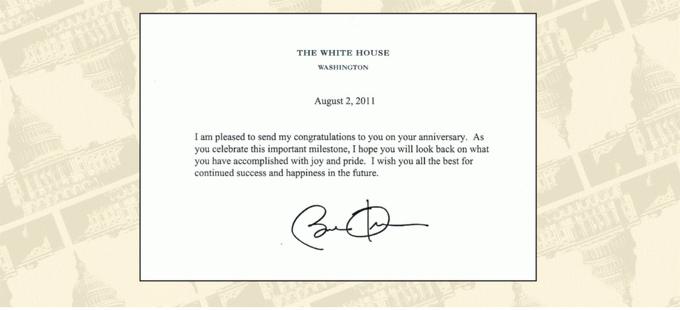 THE WHITE HOUSE
WASHINGTON
August 2, 2011
I am pleased to send my congratulations to you on your anniversary. As
you celebrate this important milestone, I hope you will look back on what
you have accomplished with joy and pride. I wish you all the best for
continued success and happiness in the future.